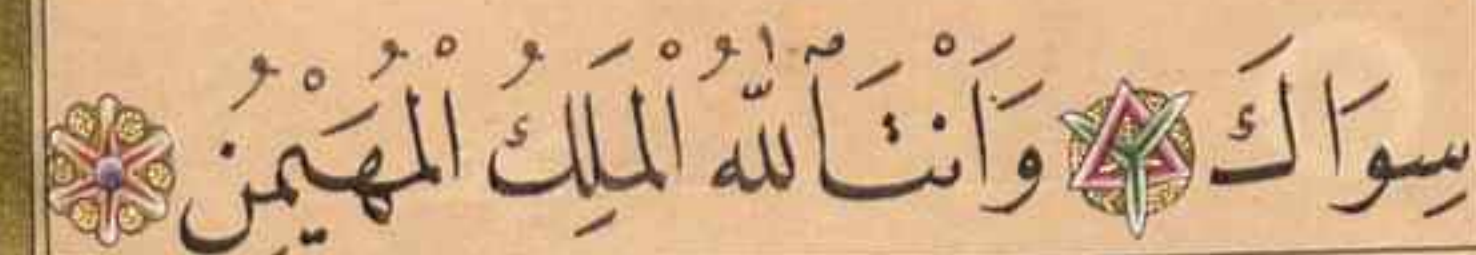 سِوَاكَ وَاَنْتَ اللّٰهُ الْمَلِكُ الْمُهَيْمِنُ